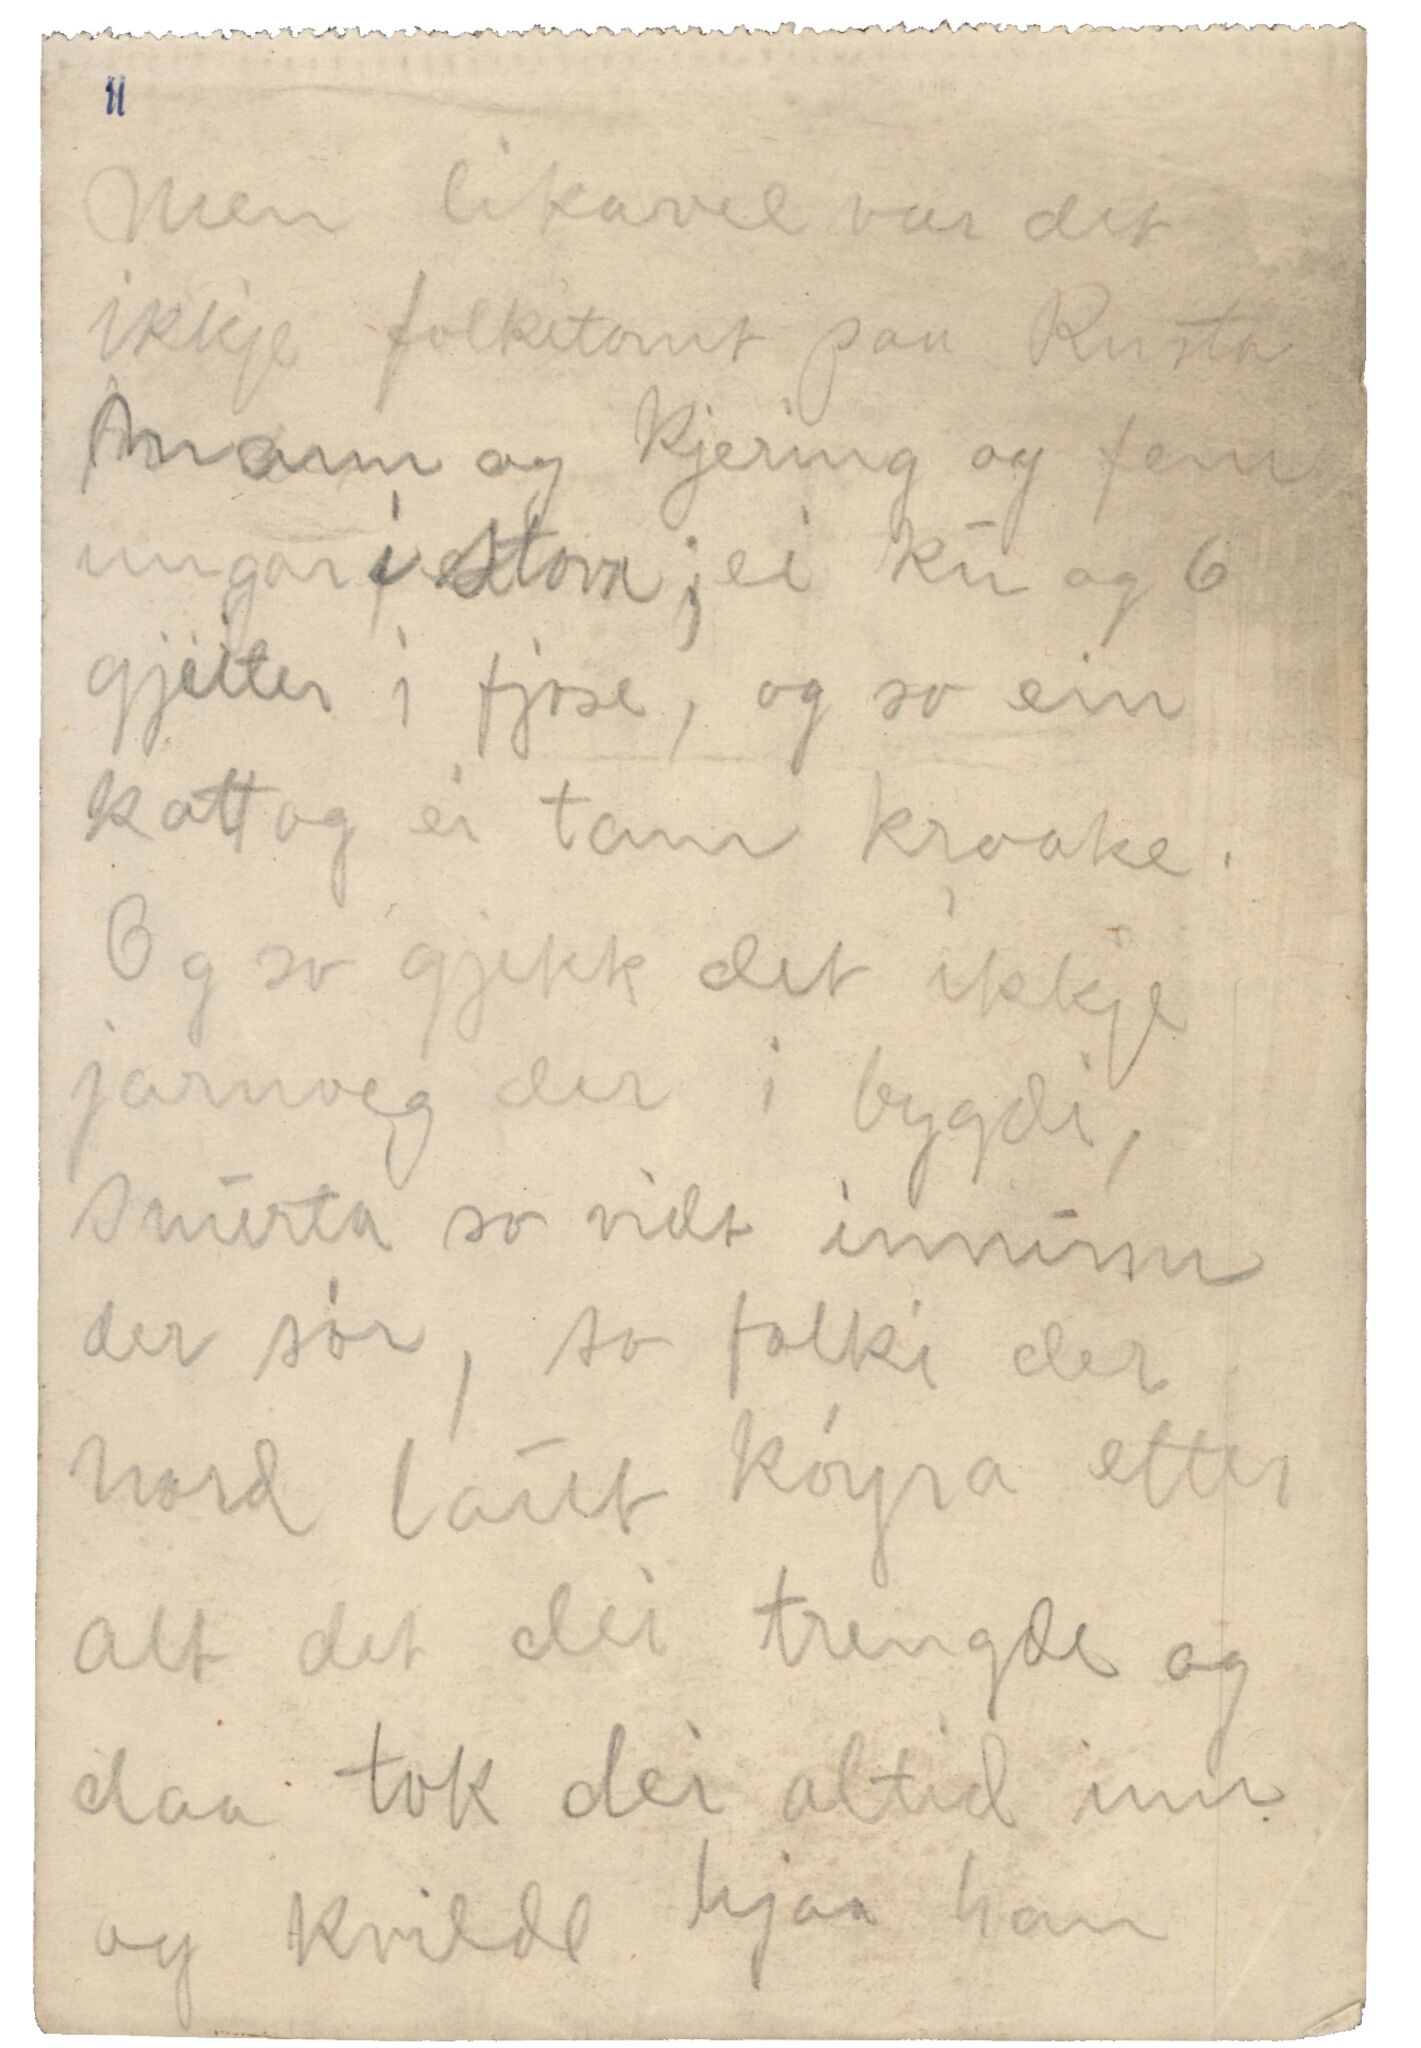 11
Men likavel var det
ikkje folketomt paa Rusta
Mann og Kjering og fem
ungar i stova; ei ku og 6
gjeiter i fjose, og so ein
katt og ei tam kraake.
Og so gjekk det ikkje
jarnveg der i bygdi,
snurta so vidt innum
der sør, so folki der
nord laut køyra etter
alt det dei trengde og
daa tok dei altid inn
og kvilde hjaa han